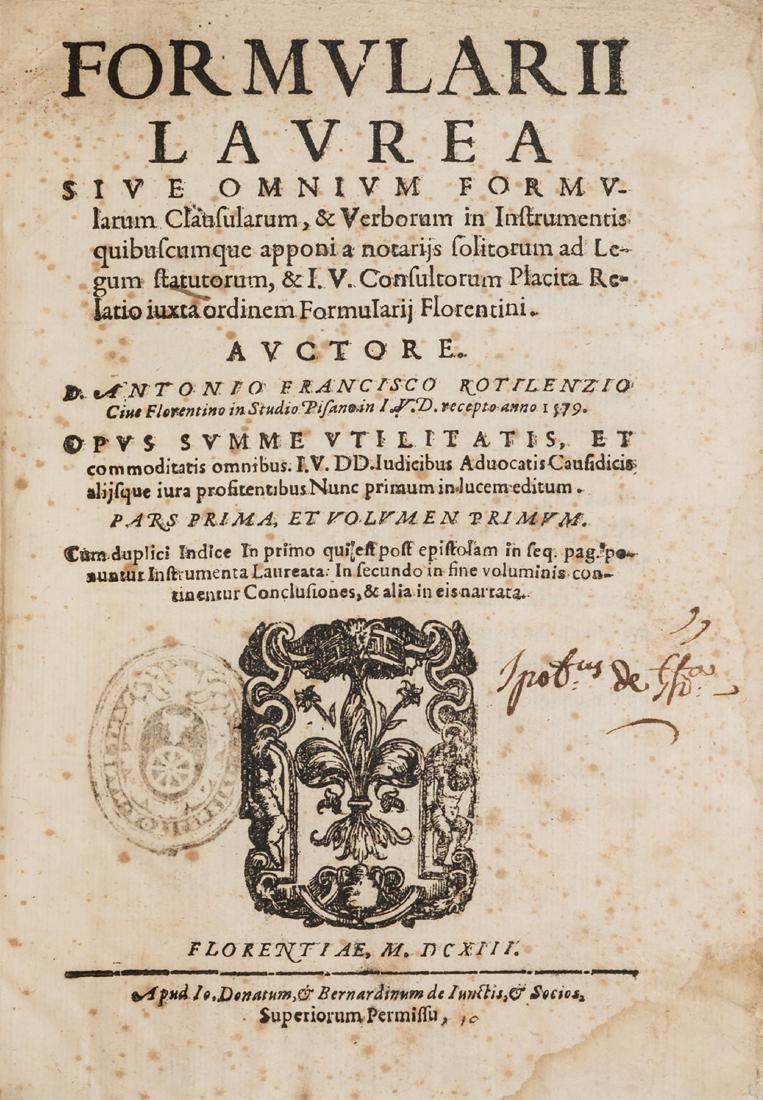 FORMVLARII
LAVREA
SIVE OMNIVM FORMV-
larum Clausularum, & Verborum in Instrumentis
quibuscumque apponi a notarijs solitorum ad Le-
gum statutorum, & I. V. Consultorum Placita Re-
latio iuxta ordinem Formularij Florentini.
AVCTORE.
D. ANTONIO FRANCISCO ROTILENZIO
Ciue Florentino in Studio Pisano in I.V.D. recepto anno 1579.
OPVS SVMME VTILITATIS, ET
commoditatis omnibus. I.V. DD. Iudicibus Aduocatis Causidicis
alijsque iura profitentibus Nunc primum in lucem editum.
PARS PRIMA, ET VOLVMEN PRIMVM.
Cum duplici Indice In primo qui est post epistolam in seq. pag. po-
nuntur Instrumenta Laureata: In secundo in fine voluminis con-
tinentur Conclusiones, & alia in eis narrata.
de
FLORENTIAE, M. DCXIII.
Apud Io. Donatum, & Bernardinum de Iunctis, & Socios,
Superiorum Permissu,